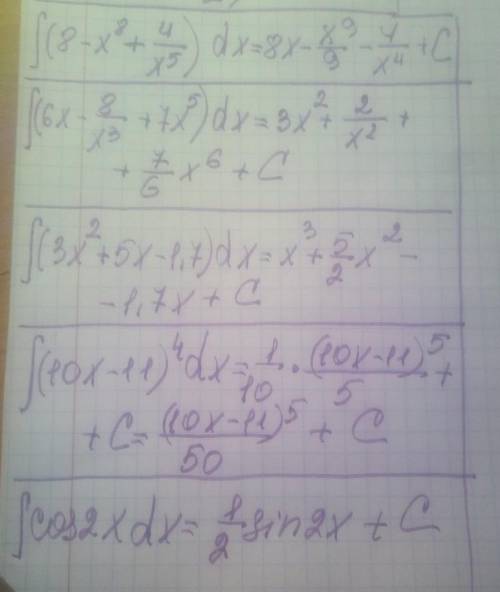 ∫(8-x⁸+4/x⁵) dx=8x-x⁹/9-1/x⁴+C
∫(6x-8/x³+7x⁵)dx=3x²+2/x²+
+7/6x⁶+C
∫(3x²+5x-1,7)dx=x³+5/2x²-
-1,7x+C
∫(10x-11)⁴dx=1/10·(10x-11)⁵/5+
+C=(10x-11)⁵/50+C
∫cos2xdx=1/2sin2x+C